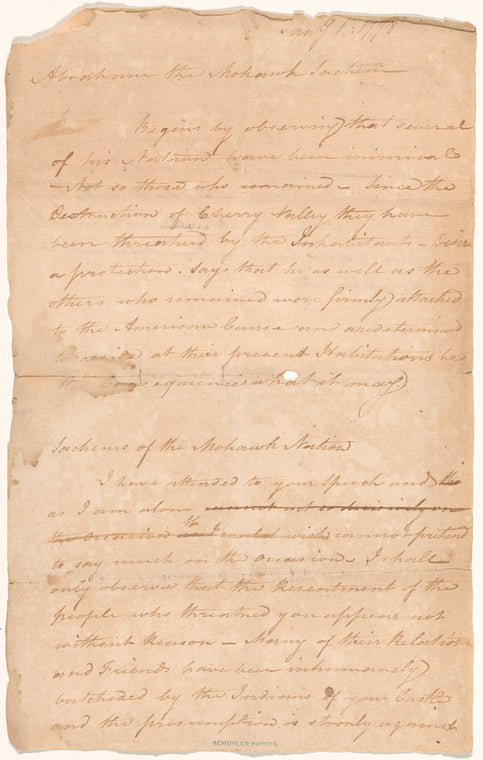 Jany 1: 1778
Abraham the Mohawk Sachem
Begins by observing that several
of his Nation have been inimical
- Not so those who remained - Since the
Destruction of Cherry Valley they have
been threatned by the Inhabitants - Desire
a protection. Says that he as well as the
others who remained were firmly attached
to the American Cause and are determined
to reside at their present Habitations be
the Consequence what it may
Sachems of the Mohawk Nation
I have attended to your Speech and this
as I am alone cannot not so decisively on
the occasion tho I could wish cannot pretend
to say much on the occasion I shall
only observe that the Resentment of the
people who threatned you appears not
without Reason - Many of their Relations
and Friends have been inhumanely
butchered by the Indians of your Castle
and the presumption is strongly against
SCHUYLER PAPERS.